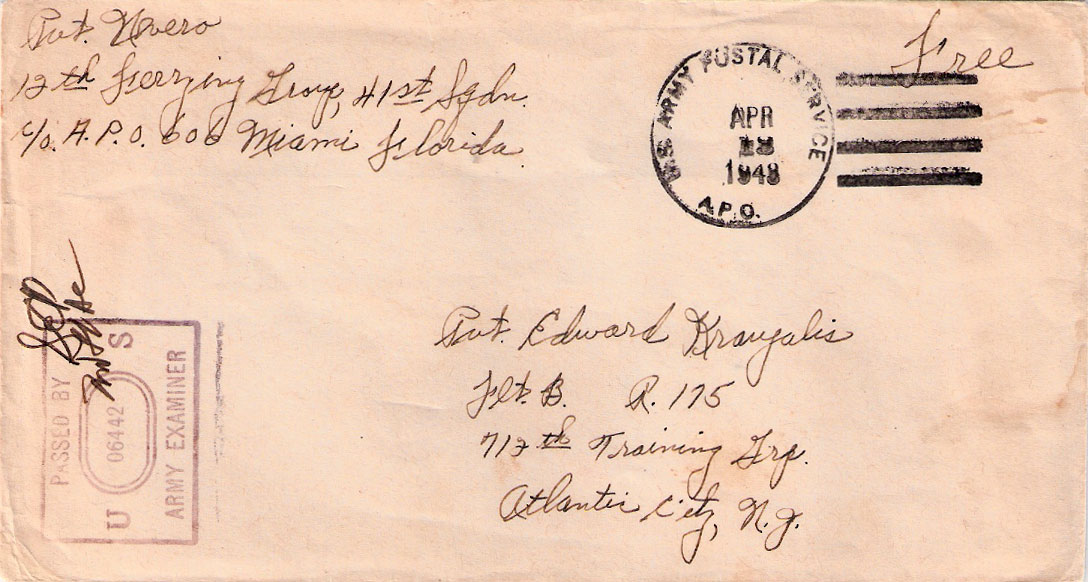 Pvt. Nvero
12th Ferrying Group, 41st Sqdn.
c/o. A.P.O. 606 Miami Florida
Free
U.S. ARMY POSTAL SERVICE
APR
13
1943
A.P.O.
Pvt. Edward Krangalis
Flt. B. R. 175
712th Training Grp.
Atlantic City, N.J.
PASSED BY
U 06442 S
ARMY EXAMINER